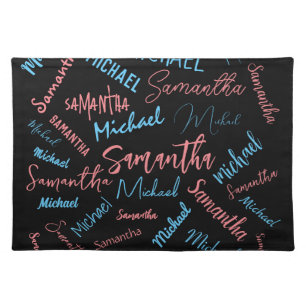 MICHAEL
Michael
Samantha
Samantha
SAMANTHA
Michael
Samantha
Michael
Michael
Samantha
SAMANTHA
Michael
Samantha
Michael
Samantha
Michael
Samantha
Samantha
Michael
Samantha
Michael
Samantha
Samantha
Michael
Samantha
Michael